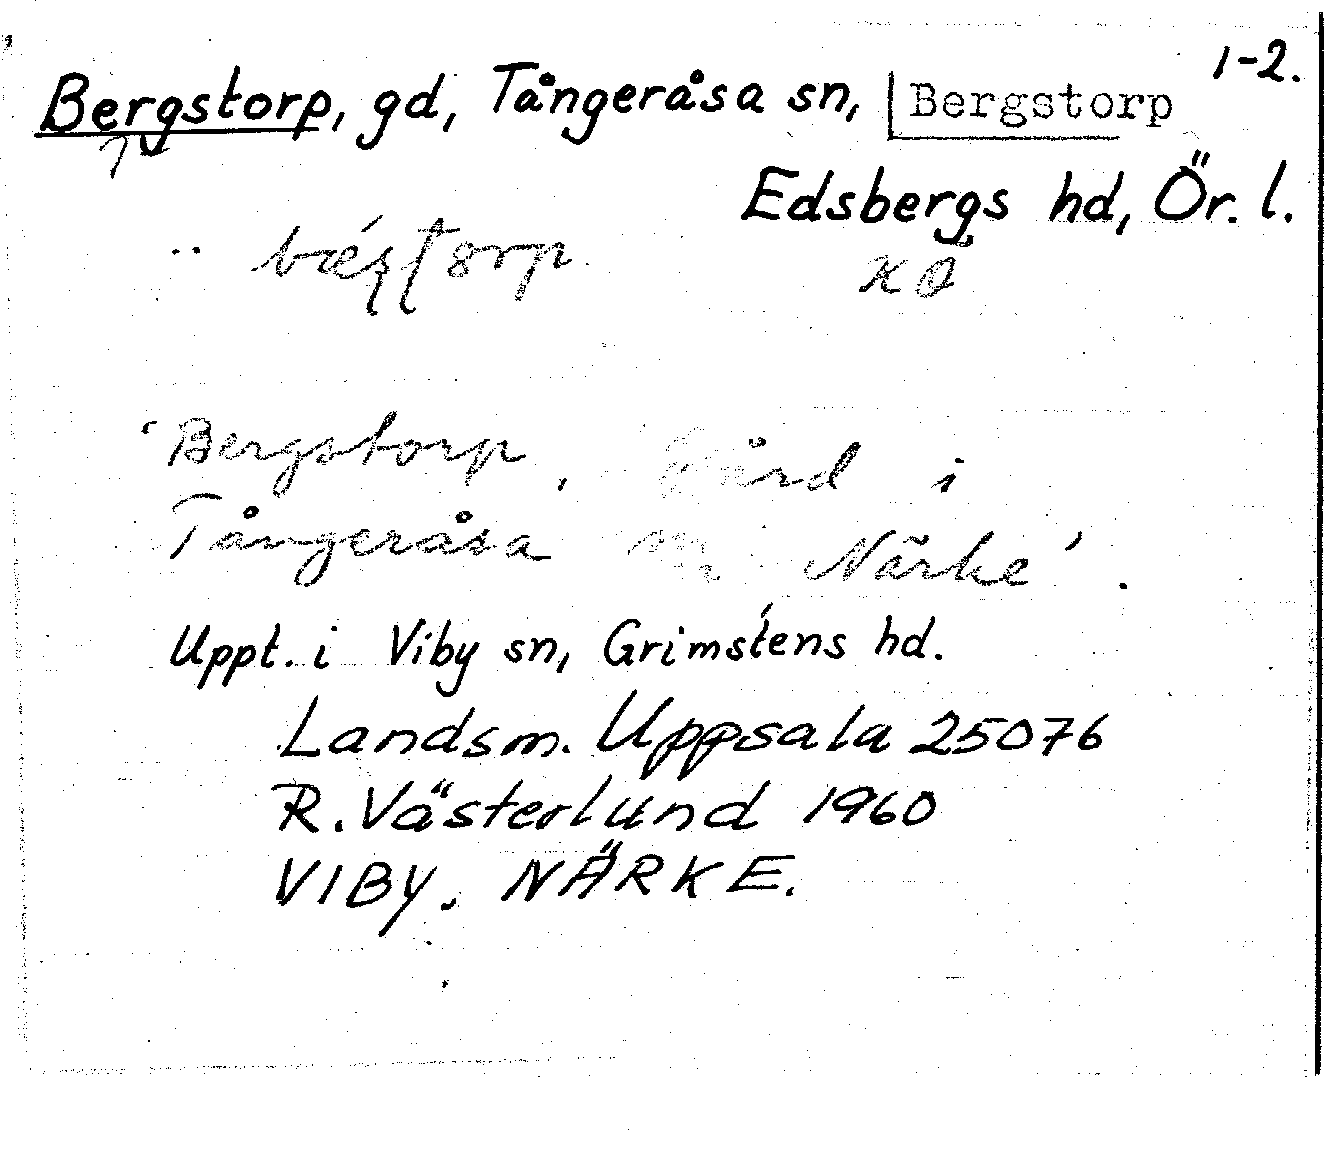 1-2.
Bergstorp, gd, Tångeråsa sn, Bergstorp
Edsbergs hd, Ör. l.
'Bergstorp, Gård i
Tångeråsa sn Närke'.
Uppt. i Viby sn, Grimstens hd.
Landsm. Uppsala 25076
R. Västerlund 1960
VIBY. NÄRKE.